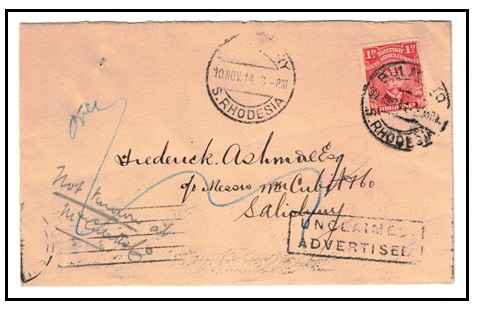 1D 1D
BRITISH
SOUTH AFRICA COMPANY
BULAWAYO
S. RHODESIA
10 NOV. 14 3 - PM
S. RHODESIA
Frederick. Ashmal Esq
c/o Messrs McCubit & Co
Salisbury
Not Known at
McCubit & Co
UNCLAIMED
ADVERTISED